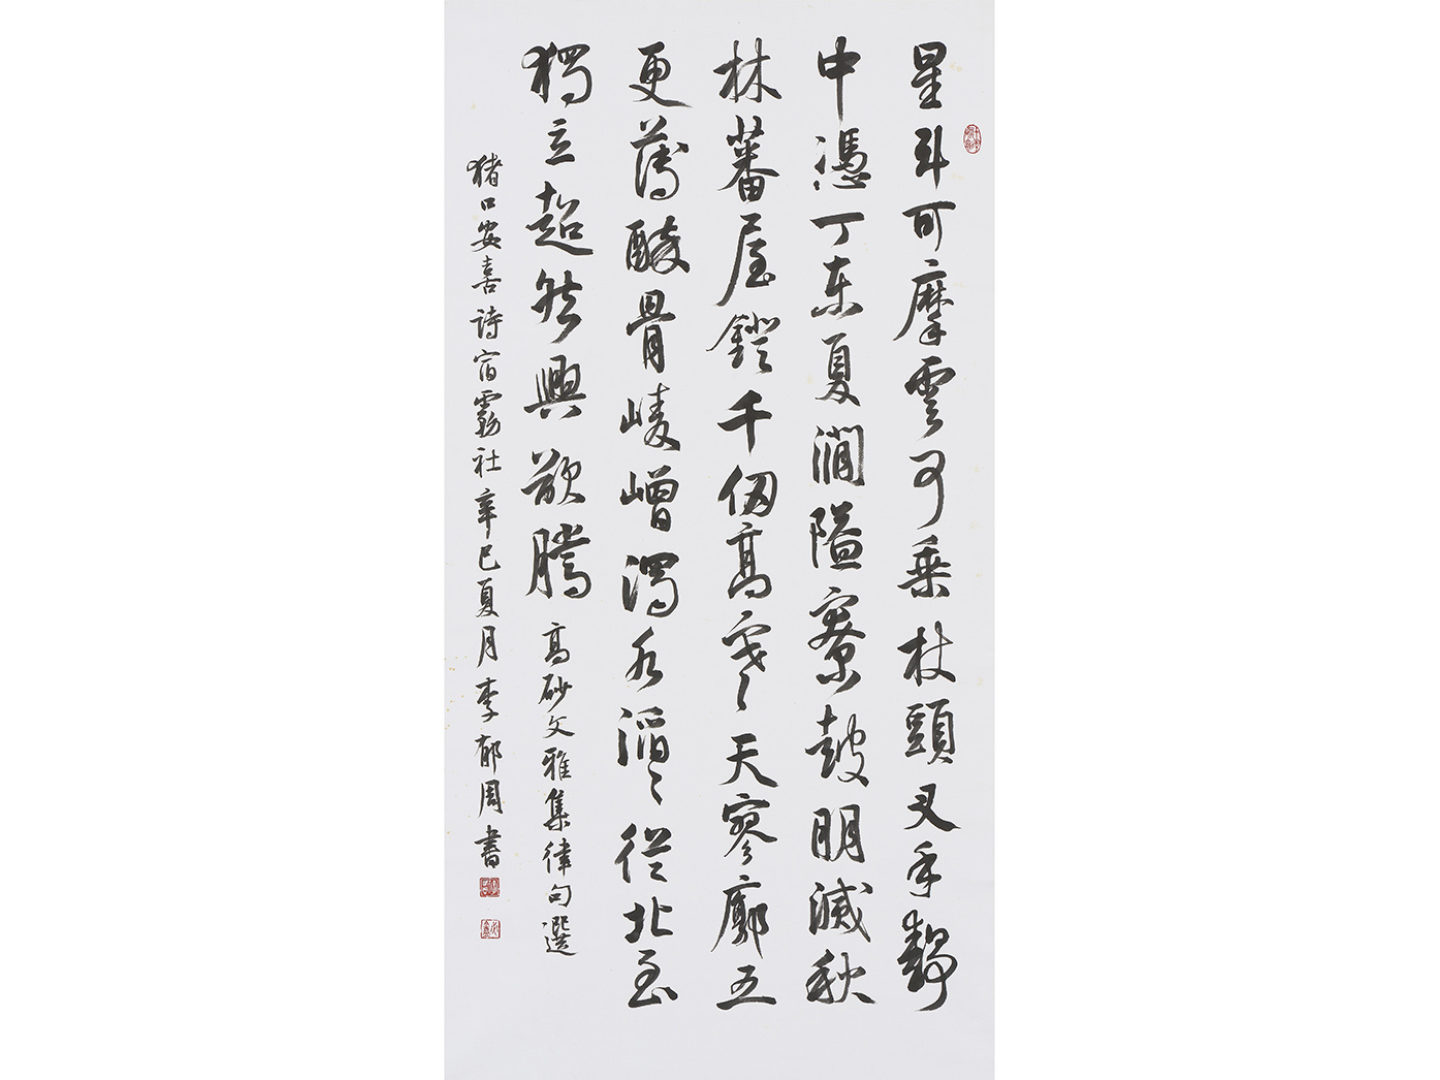 星斗可摩雲可乘杖頭叉手靜
中憑丁東夏澗隘寮鼓明滅秋
林蕃屋鐙千仞高寒天寥廓五
更薄醉骨崚嶒濁水滔々從北至
獨立超然興欲騰 高砂文雅集律句選
猪口安喜詩宿霧社辛巳夏月李郁周書